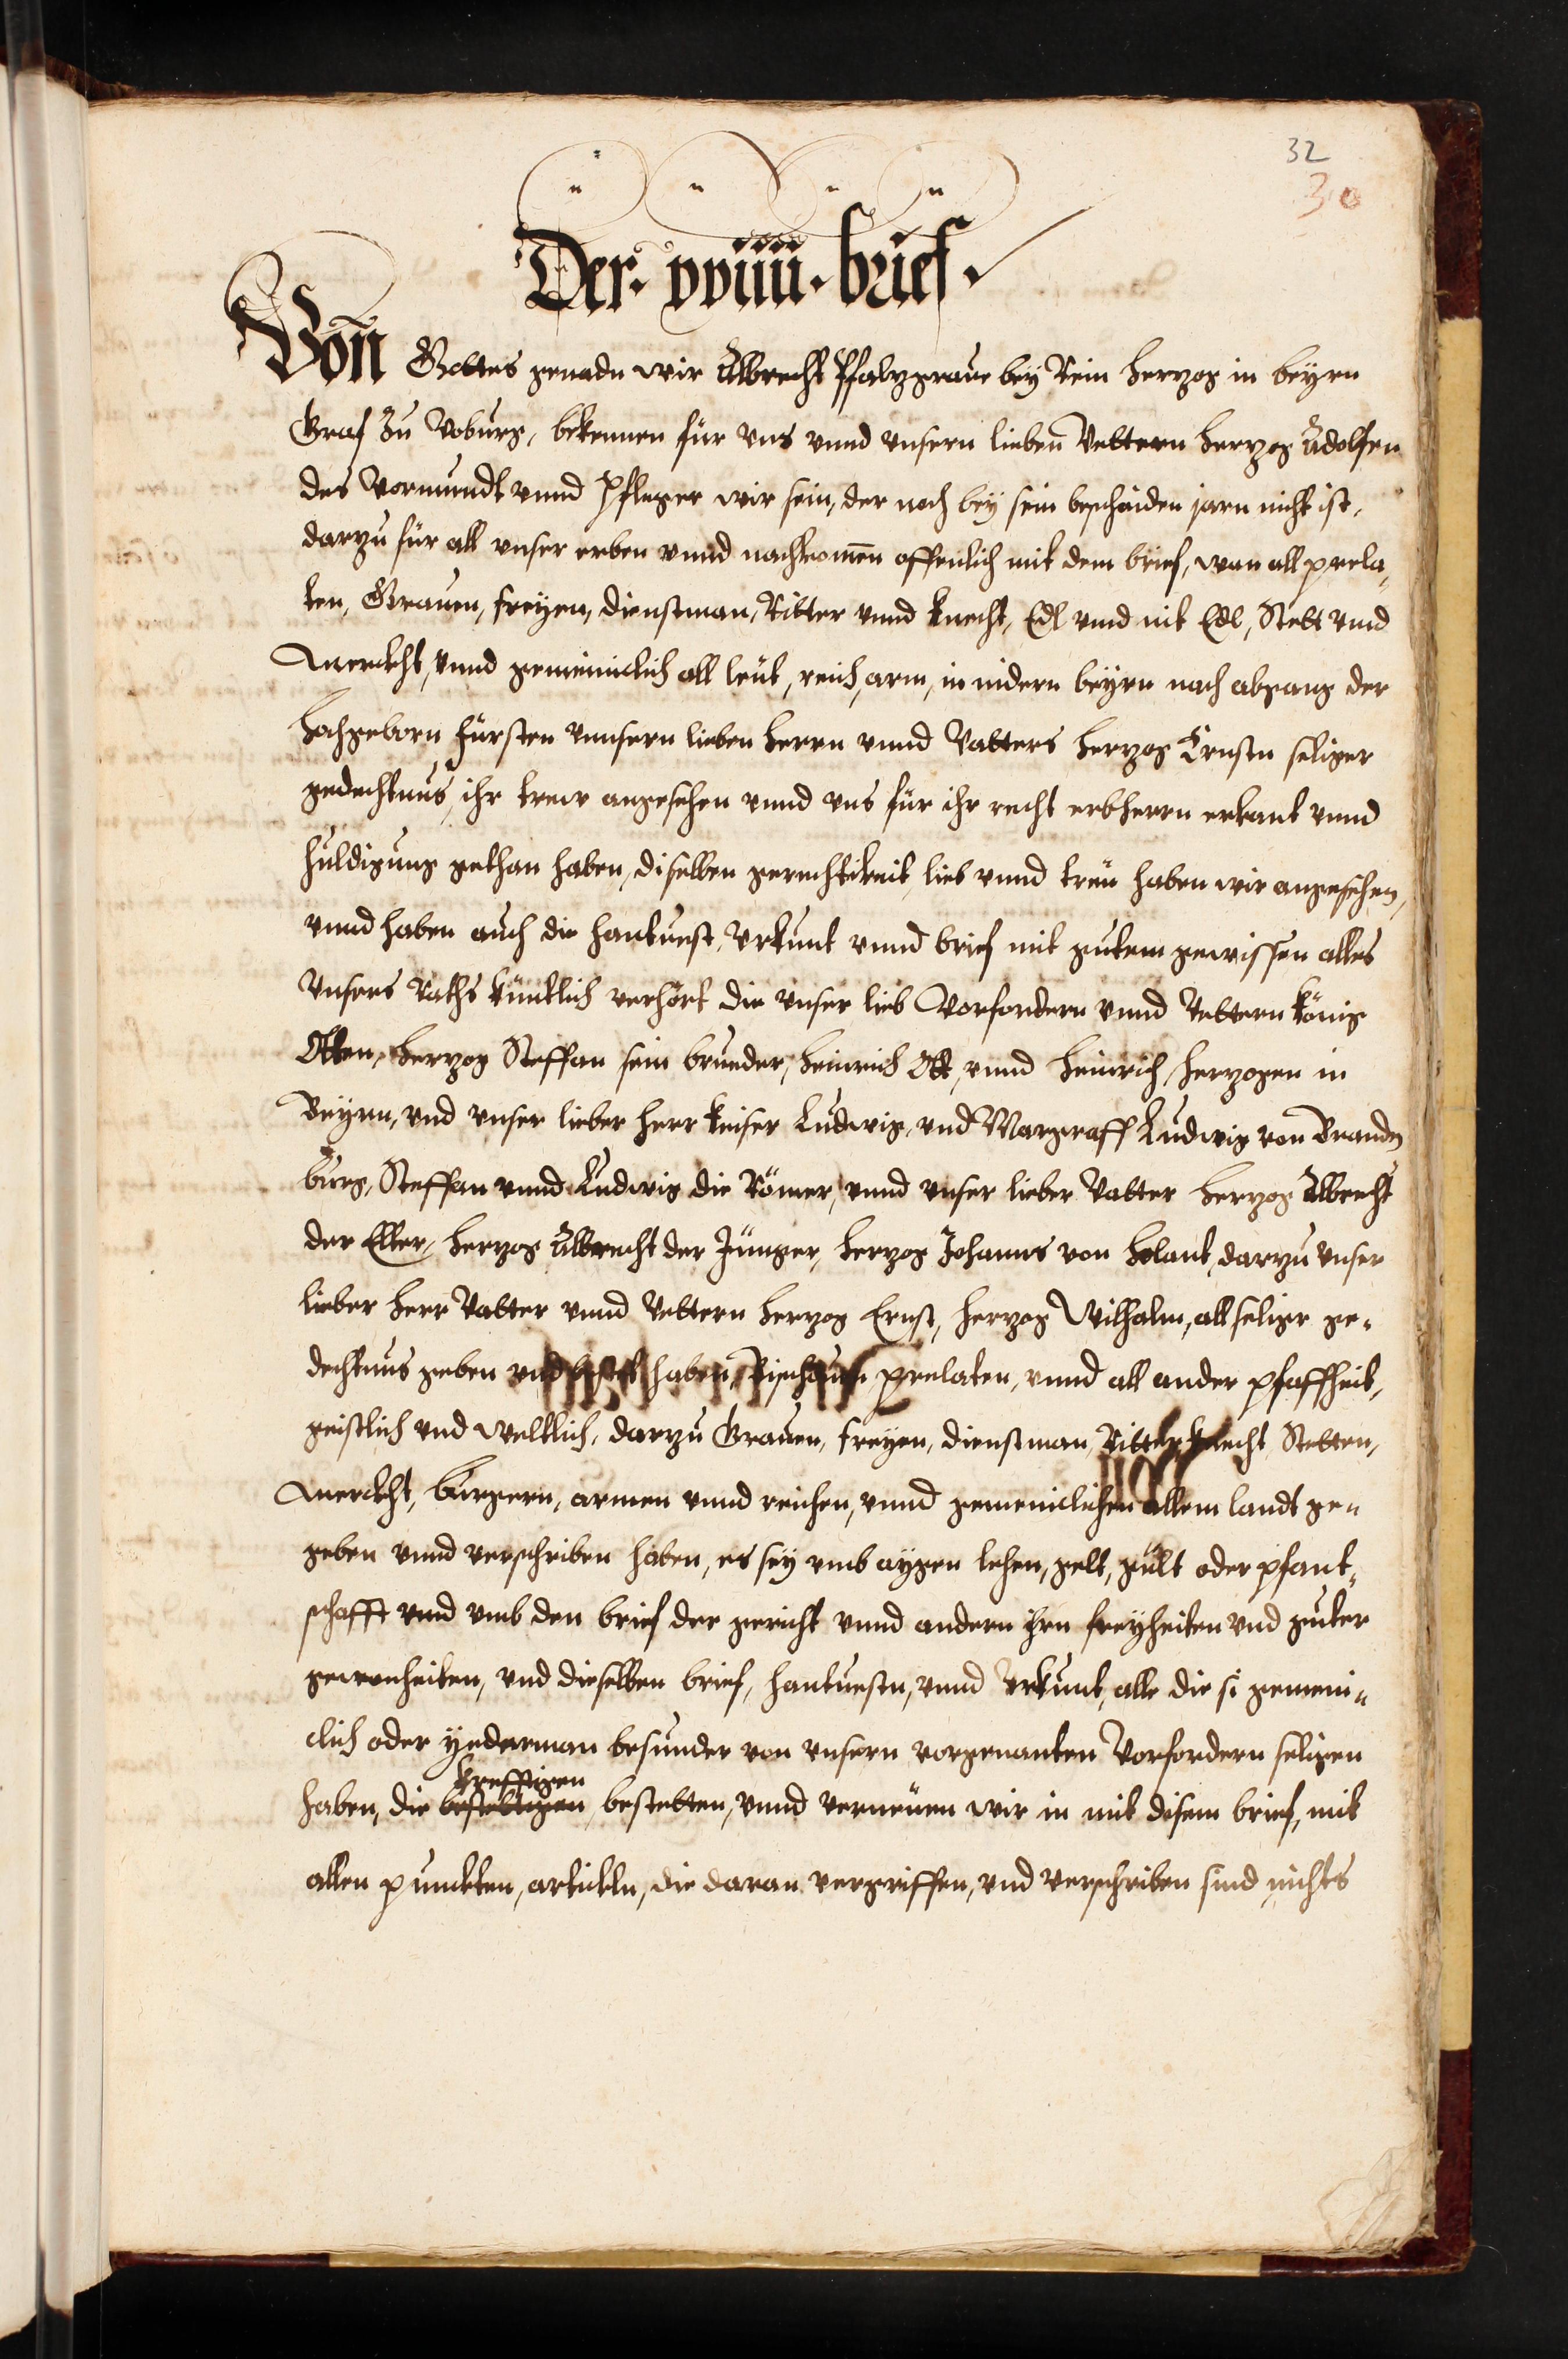 32
30
Der · xxiiii · brief ·
Von Gottes genadn wir Albrecht Pfalzgraue bey Rein Herzog in beyrn
Graf Zu Voburg, bekennen für vns vnnd vnsern liebenn Vettern Herzog Adolfen
des Vormundt vnnd Pfleger wir sein, der noch bey sein beschaiden jarn nicht ist,
darzu für all vnser erben vnnd nachkomen offenlich mit dem brief, wan all prela„
ten, Grauen, freyen, dienstman, Ritter vnnd knecht, Edl vnnd nit Edl, Stett vnnd
Merckht, vnnd gemainiclich all leut, reich, arm, in nidern beyrn nach abgang der
hochgeborn fürsten vnnsern lieben Herrn vnnd Vatters Herzog Ernstn seliger
gedechtnus, ihr trew angesehen vnnd vns für ihr recht erbherrn erkant vnnd
huldigung gethan haben, diselben gerechtikeit lieb vnnd treu haben wir angesehen,
vnnd haben auch die hantuest, Vrkunt vnnd brief mit gutem gewissen alles
Vnsers Raths kuntlich verhört die vnser lieb Vorfordern vnnd Vettern könig
Otten, Herzog Steffan sein brueder, Heinrich Ott, vnnd Heinrich, Herzogen in
Beyrn, vnd vnser lieber Herr keiser Ludwig, vnd Margraff Ludwig von Branden
burg, Steffan vnnd Ludwig die Römer, vnnd vnser lieber Vatter Herzog Albrecht
der Elter, Herzog Albrecht der Jünger, Herzog Johanns von Holant, darzu vnser
lieber Herr Vatter vnnd Vettern Herzog Ernst, Herzog Wilhalm, all seliger ge„
dechtnus geben vnd haben, Bischouen prelaten, vnnd all ander pfaffheit,
geistlich vnd weltlich, darzu Grauen, freyen, dienstman, Ritter knecht, Stetten,
Merckht, burgern, armen vnnd reichen, vnnd gemeniclichen allem landt ge„
geben vnnd verschriben haben, es sey vmb aygen lehen, gelt, gült oder pfant„
schafft vnnd vmb den brief der gericht vnnd andern ihrn freyheiten vnd guter
gewonheiten, vnd dieselben brief, hantuestn, vnnd Vrkunt, alle die si gemeni„
clich oder yederman besunder von vnsern vorgenanten Vorfordern seligen
kreffigen
haben, die bestettigen, bestetten, vnnd verneuen wir in mit disem brief, mit
allen punckten, artickln, die daran vergriffen, vnd verschriben sind nichts